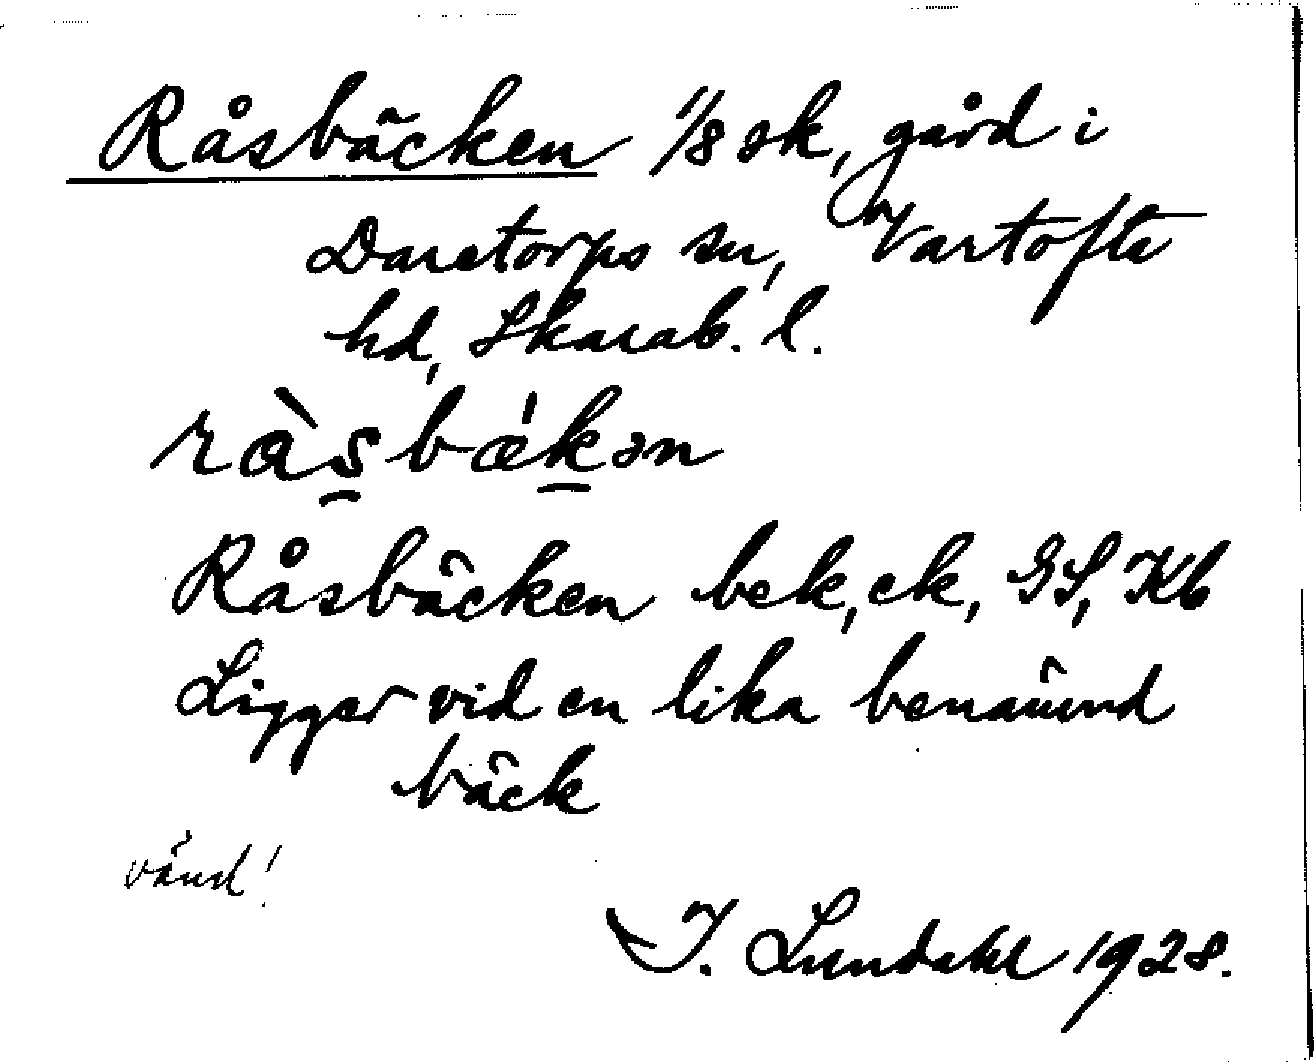 Råsbäcken 1/8 sk, gård i
Daretorps sn, Vartofte
hd, Skarab. l.
ràsbǽkən
Råsbäcken bek, ek, GS, Kb
Ligger vid en lika benämnd
bäck
vänd!
I. Lundahl 1928.